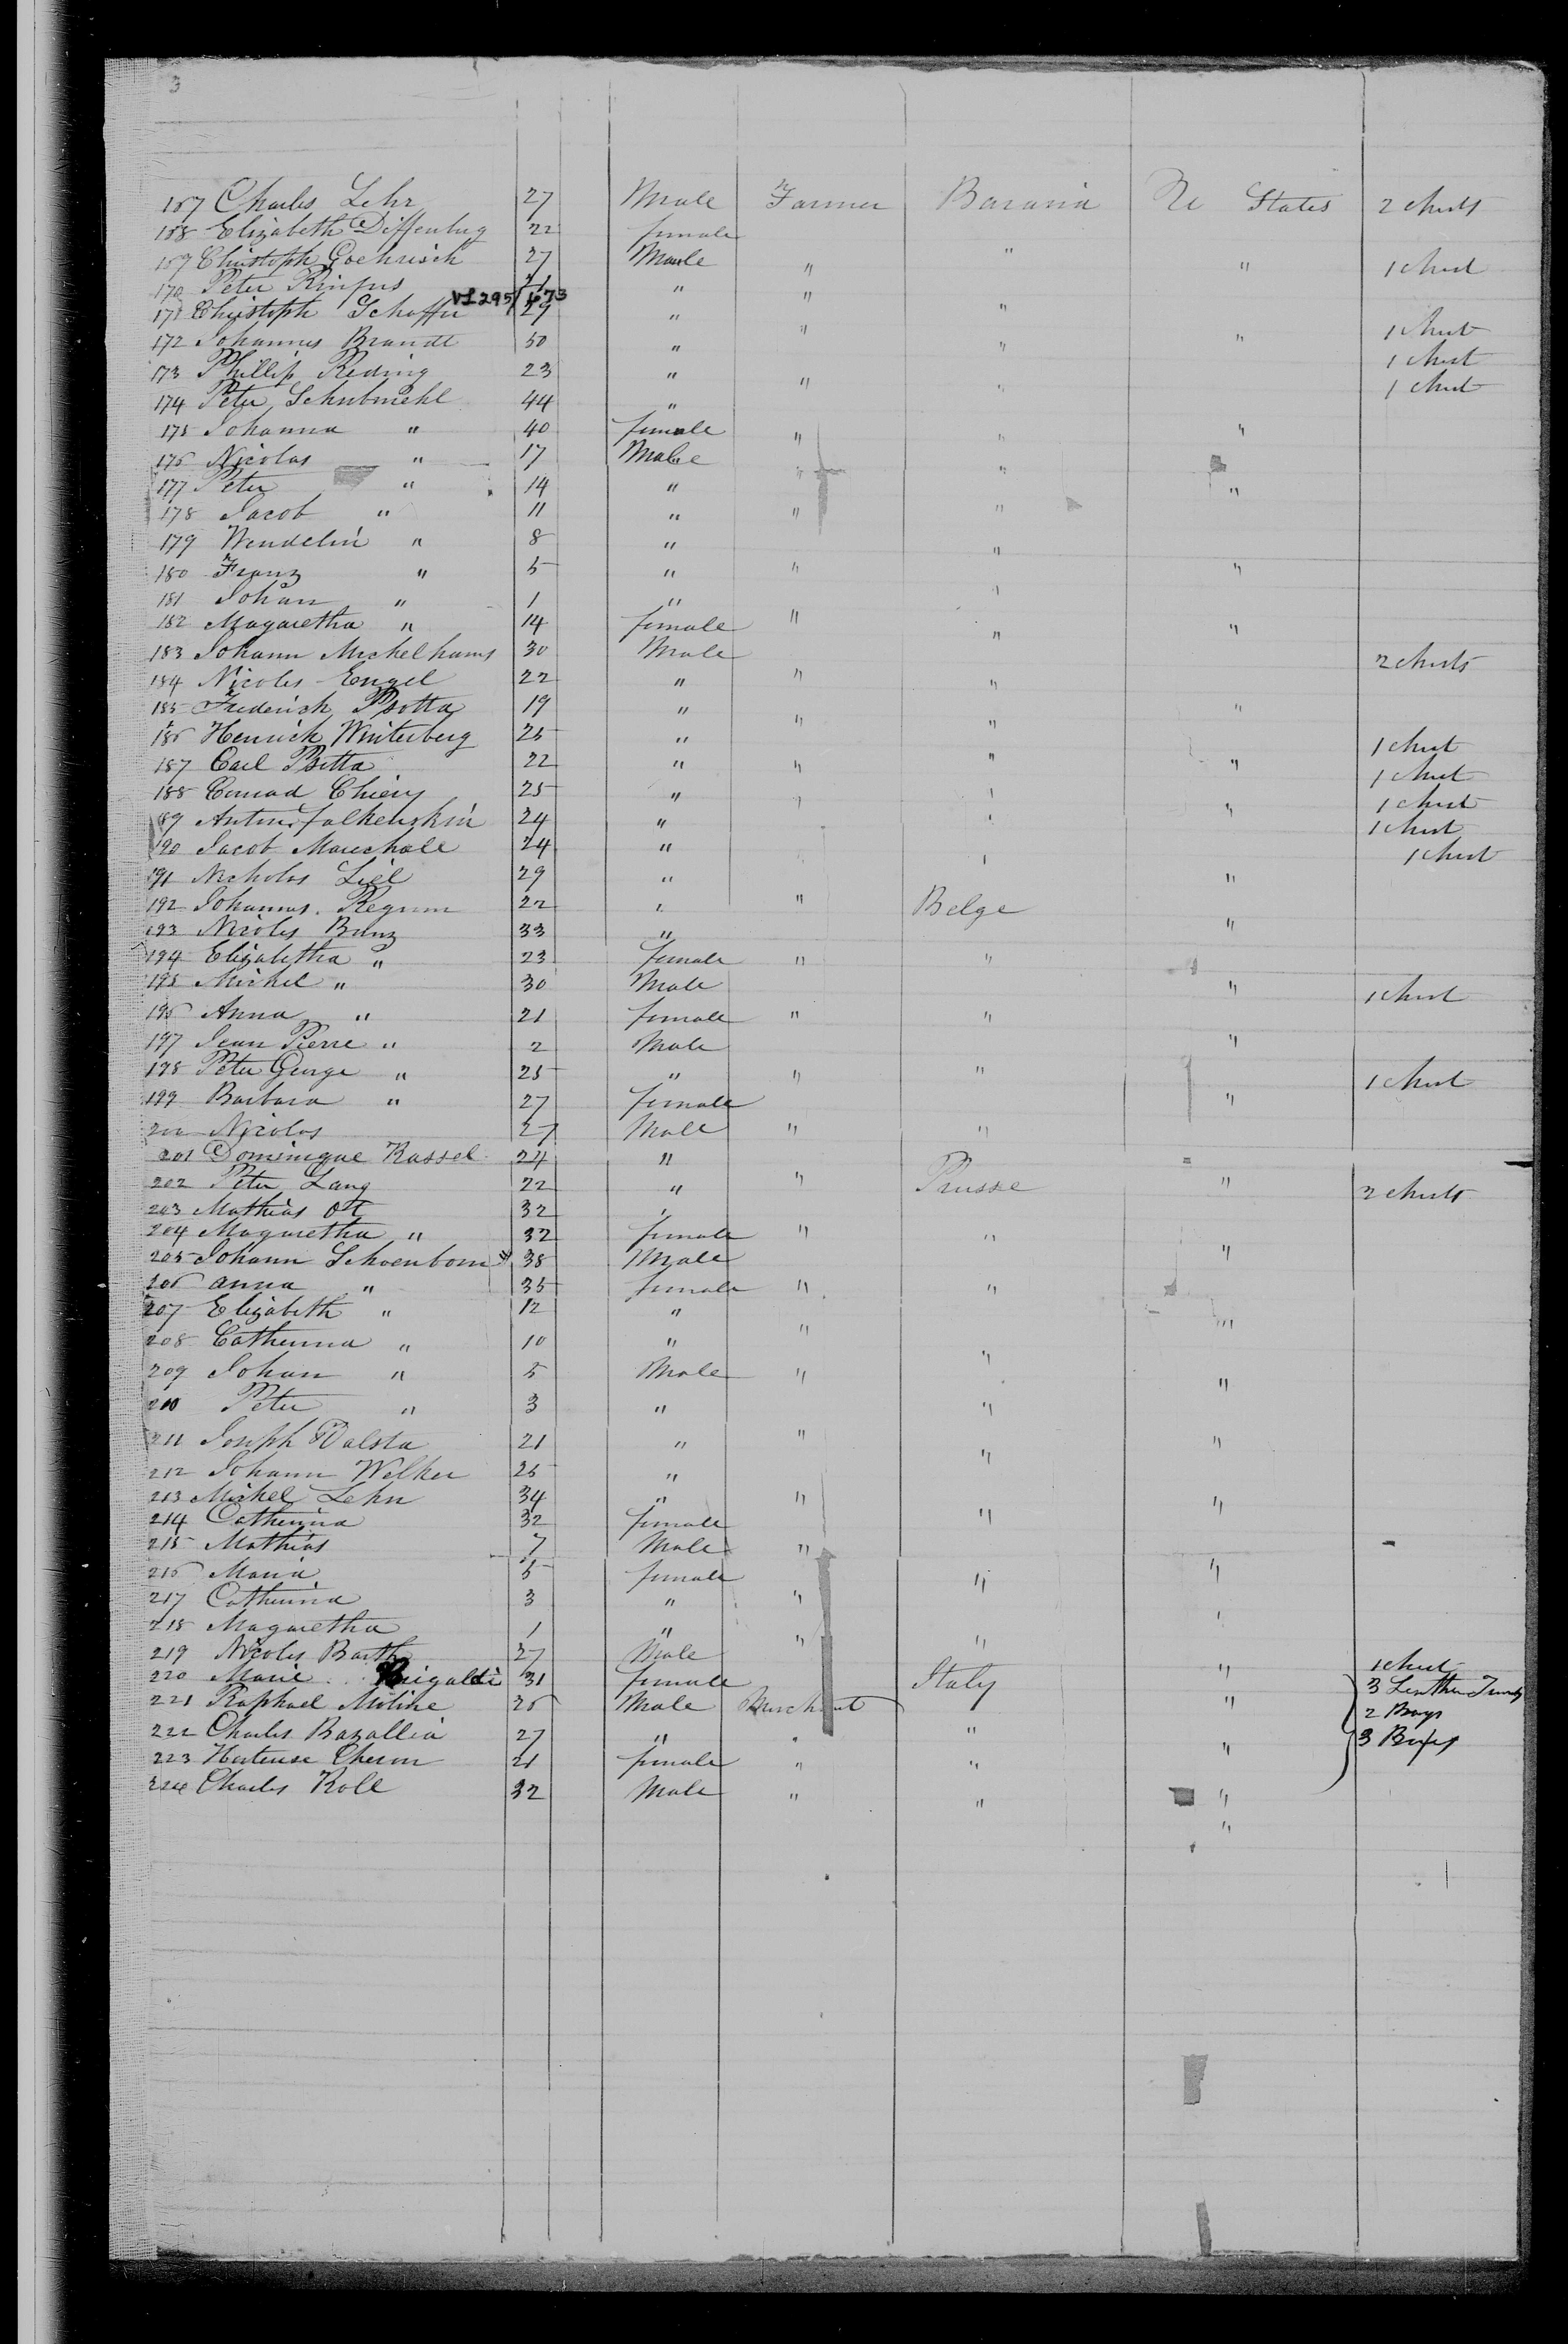 3
167 Charles Lehr 27 Male Farmer Bavaria States 2 chests
168 Elizabeth Diffenbug 22 female
169 Christoph Gochrisch 27 Male " " " 1 chest
170 Peter " "
V1295/673
171 Christoph Schaffer 29 " " "
172 Johannes Brandt 50 " " " 1 chest
173 Phillip Reding 23 " 1 chest
174 Peter Schubmehl 44 " " 1 chest
175 Johanna " 40 female " " "
176 Nicolas " 17 Male " "
177 Peter " 14 " "
178 Jacob " 11 " " "
179 Wendelin " 8 " "
180 Franz " 5 " " "
181 Johan " 1 " "
182 Magaretha " 14 female " "
183 Johann Michelhams 30 Male 2 chests
184 Nicolas Engel 22 " " "
185 Frederich Psotta 19 " "
186 Henrich Winterberg 25 " " " 1 chest
187 Carl Psotta 22 " " " " 1 chest
188 Conrad Chiery 25 " " 1 chest
189 Falkenshin 24 " " 1 chest
190 Jacob Marechall 24 " 1 chest
191 Nicholas Liel 29 " "
192 Johannes Regnum 22 " " Belge
193 Nicolas Bunz 33 " "
194 Elizabetha " 23 female " "
195 Michel " 30 Male " 1 chest
196 Anna " 21 female " "
197 Jean Pierre " 2 Male "
198 Peter George " 25 " " " 1 chest
199 Barbara " 27 female "
200 Nicolas 27 Male " "
201 Dominique Kassel 24 "
202 Peter Lang 22 " " Prusse " 2 chests
203 Mathias Ott 32 "
204 Magaretha " 32 female " "
205 Johann Schoenborn 38 Male "
206 anna " 35 female " "
207 Elizabeth " 12 " "
208 Catherina " 10 " "
209 Johan " 5 Male " " "
210 Peter " 3 " "
211 Joseph Dalsta 21 " " "
212 Johann Welker 25 " "
213 Michel Lehn 34 " " "
214 Catherina 32 female "
215 Mathias 7 Male "
216 Maria 5 female " "
217 Catherina 3 " "
218 Magaretha 1 " " "
219 Nicolas Barth 27 Male 1 chest
220 Marie Rigaldi 31 female Italy " 3 Leather Trunks
221 Raphael Moline 26 Male Merchant " 2 Bags
222 Charles Bazallia 27 " " " 3 Boxes
223 Hortense Cheron 21 female " "
224 Charles Roll 32 Male " " "
"